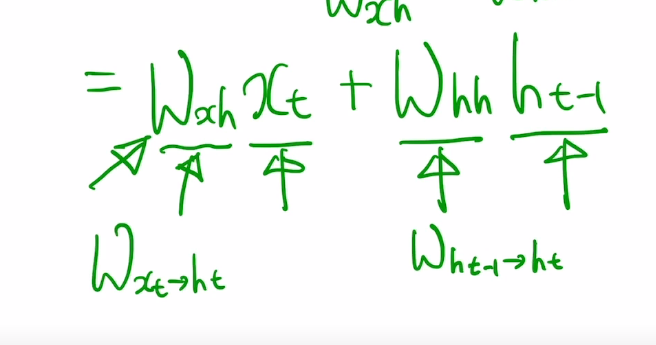 Wxh
= Wxh xt + Whh ht-1
Wxt→ht Wht-1→ht